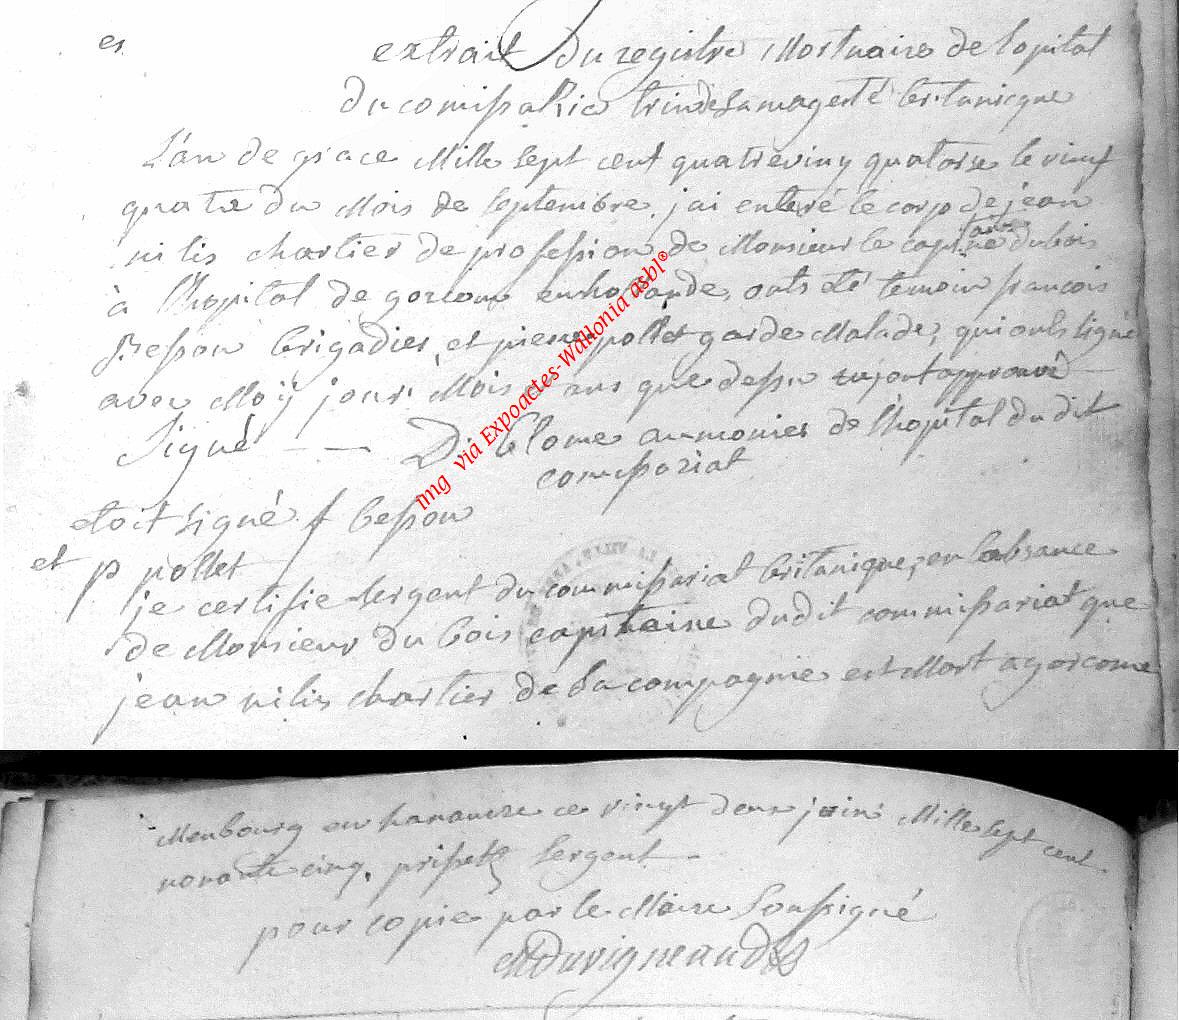 es
extrait Du registre Mortuaire de lopital
Du comissaRia trindesa magesté britanicque
L'an de grace Mille sept cent quatrevin quatorse le vint
quatre du Mois de septembre, j'ai enteré le corp de jean
nilis chartier de profession de Monsieur le capitaine dubois
à l'hopital de gorcom en hollande, onts été temoin francois
Besson brigadier, et pierre pollet garde Malade, qui onts signé
avec Moÿ jour Mois et ans que dessu approuvé
Signé — — D: blome aumonier de l'hopital du dit
comissariat
etoit signé f besson
et p pollet
je certifie sergent du commissariat britanique, en labsance
de Monsieur du bois capitaine dudit commissariat que
jean nilis chartier de sa compagnie est Mort a gorcome
Menbourg en hanauvre ce vingt deux juin Mille sept cent
nonante cinq. prisset sergent
pour copie par le Maire soussigné
Duvigneaud
img via Expoactes-Wallonia asbl®